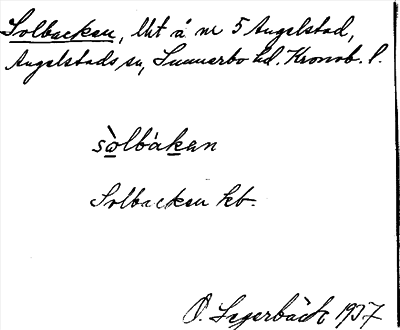 Solbacken, lht å nr 5 Angelstad,
Angelstads sn, Sunnerbo hd. Kronob. l.
sòlbàkən
Solbacken kb.
O. Lagerbäck 1937